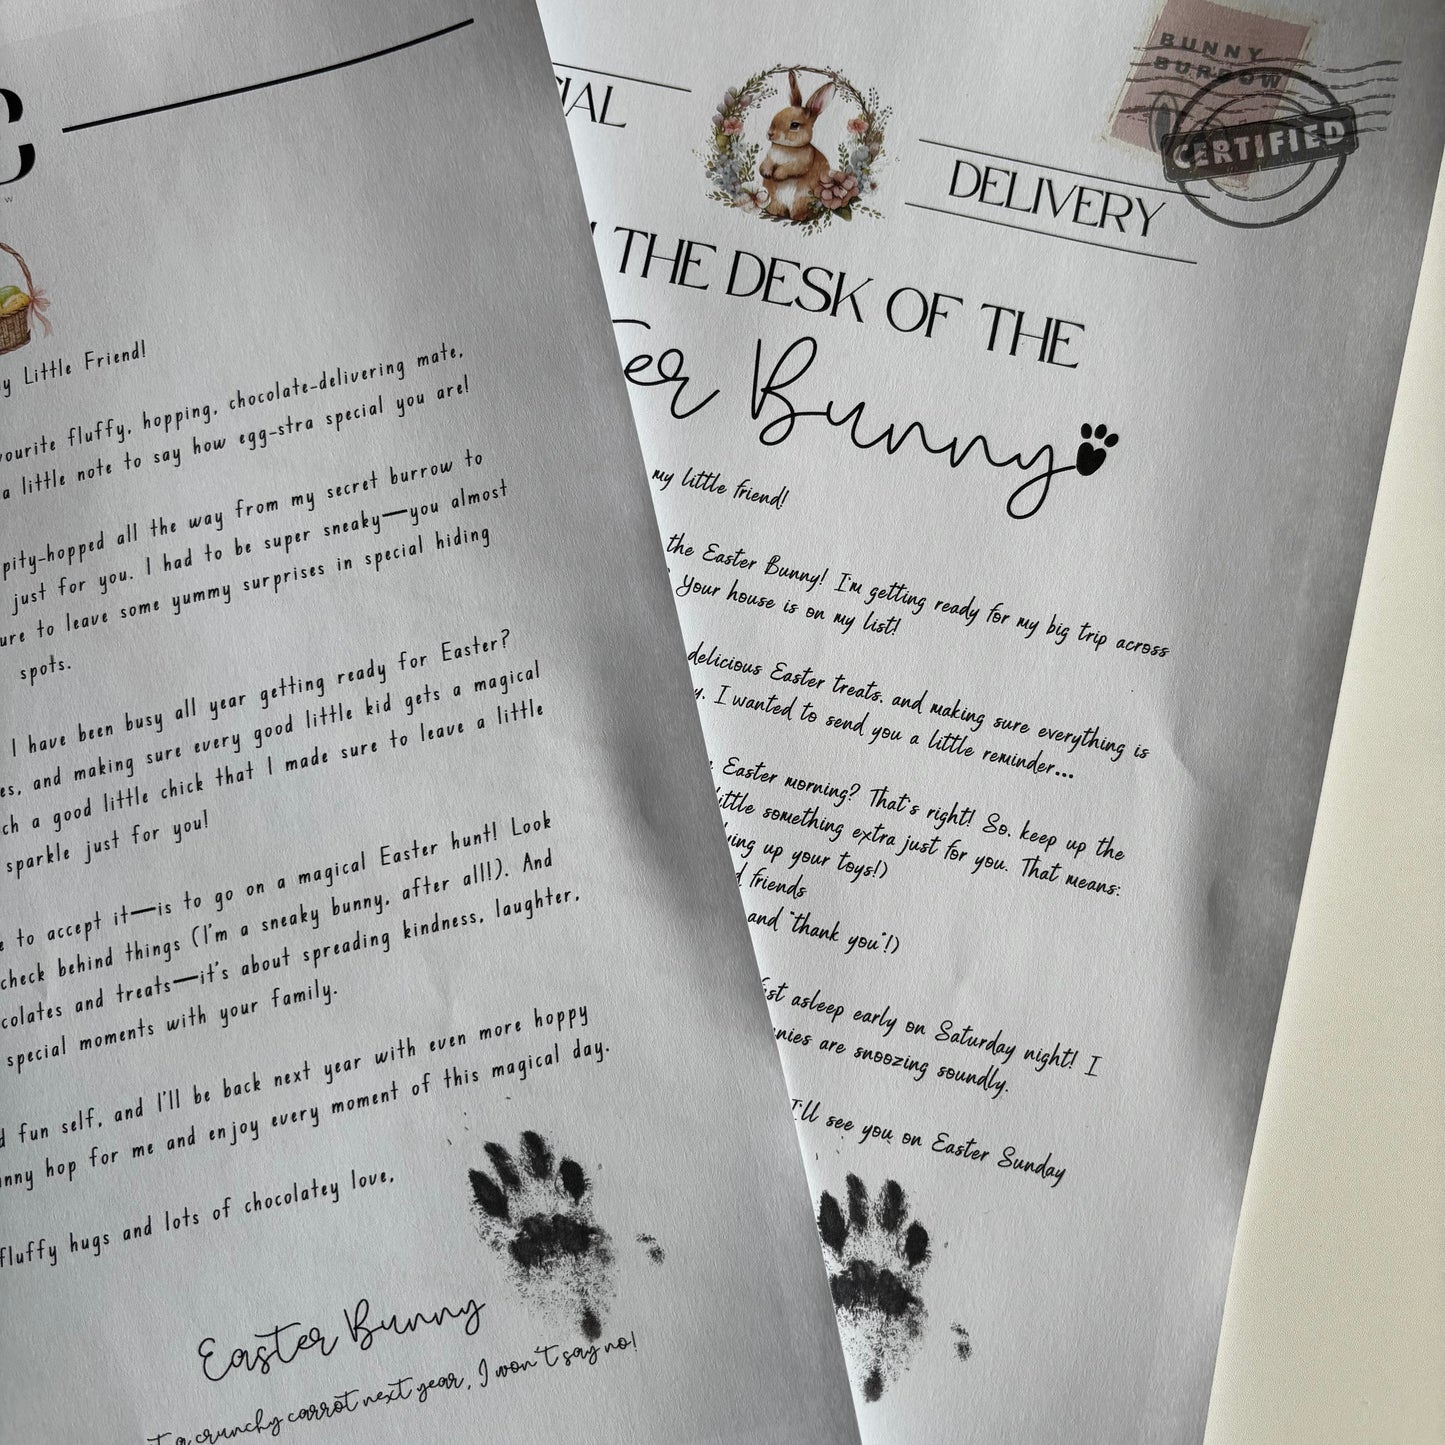 C
w
y Little Friend!
vourite fluffy, hopping, chocolate-delivering mate,
a little note to say how egg-stra special you are!
pity-hopped all the way from my secret burrow to
just for you. I had to be super sneaky—you almost
ure to leave some yummy surprises in special hiding
spots.
I have been busy all year getting ready for Easter?
es, and making sure every good little kid gets a magical
ch a good little chick that I made sure to leave a little
sparkle just for you!
e to accept it—is to go on a magical Easter hunt! Look
check behind things (I'm a sneaky bunny, after all!). And
colates and treats—it's about spreading kindness, laughter,
special moments with your family.
d fun self, and I'll be back next year with even more hoppy
nny hop for me and enjoy every moment of this magical day.
fluffy hugs and lots of chocolatey love,
Easter Bunny
a crunchy carrot next year, I won't say no!
CIAL
DELIVERY
BUNNY
BURROW
CERTIFIED
THE DESK OF THE
ter Bunny
my little friend!
the Easter Bunny! I'm getting ready for my big trip across
Your house is on my list!
delicious Easter treats, and making sure everything is
y. I wanted to send you a little reminder...
Easter morning? That's right! So, keep up the
little something extra just for you. That means:
ying up your toys!)
d friends
and "thank you"!)
fast asleep early on Saturday night! I
nies are snoozing soundly.
I'll see you on Easter Sunday